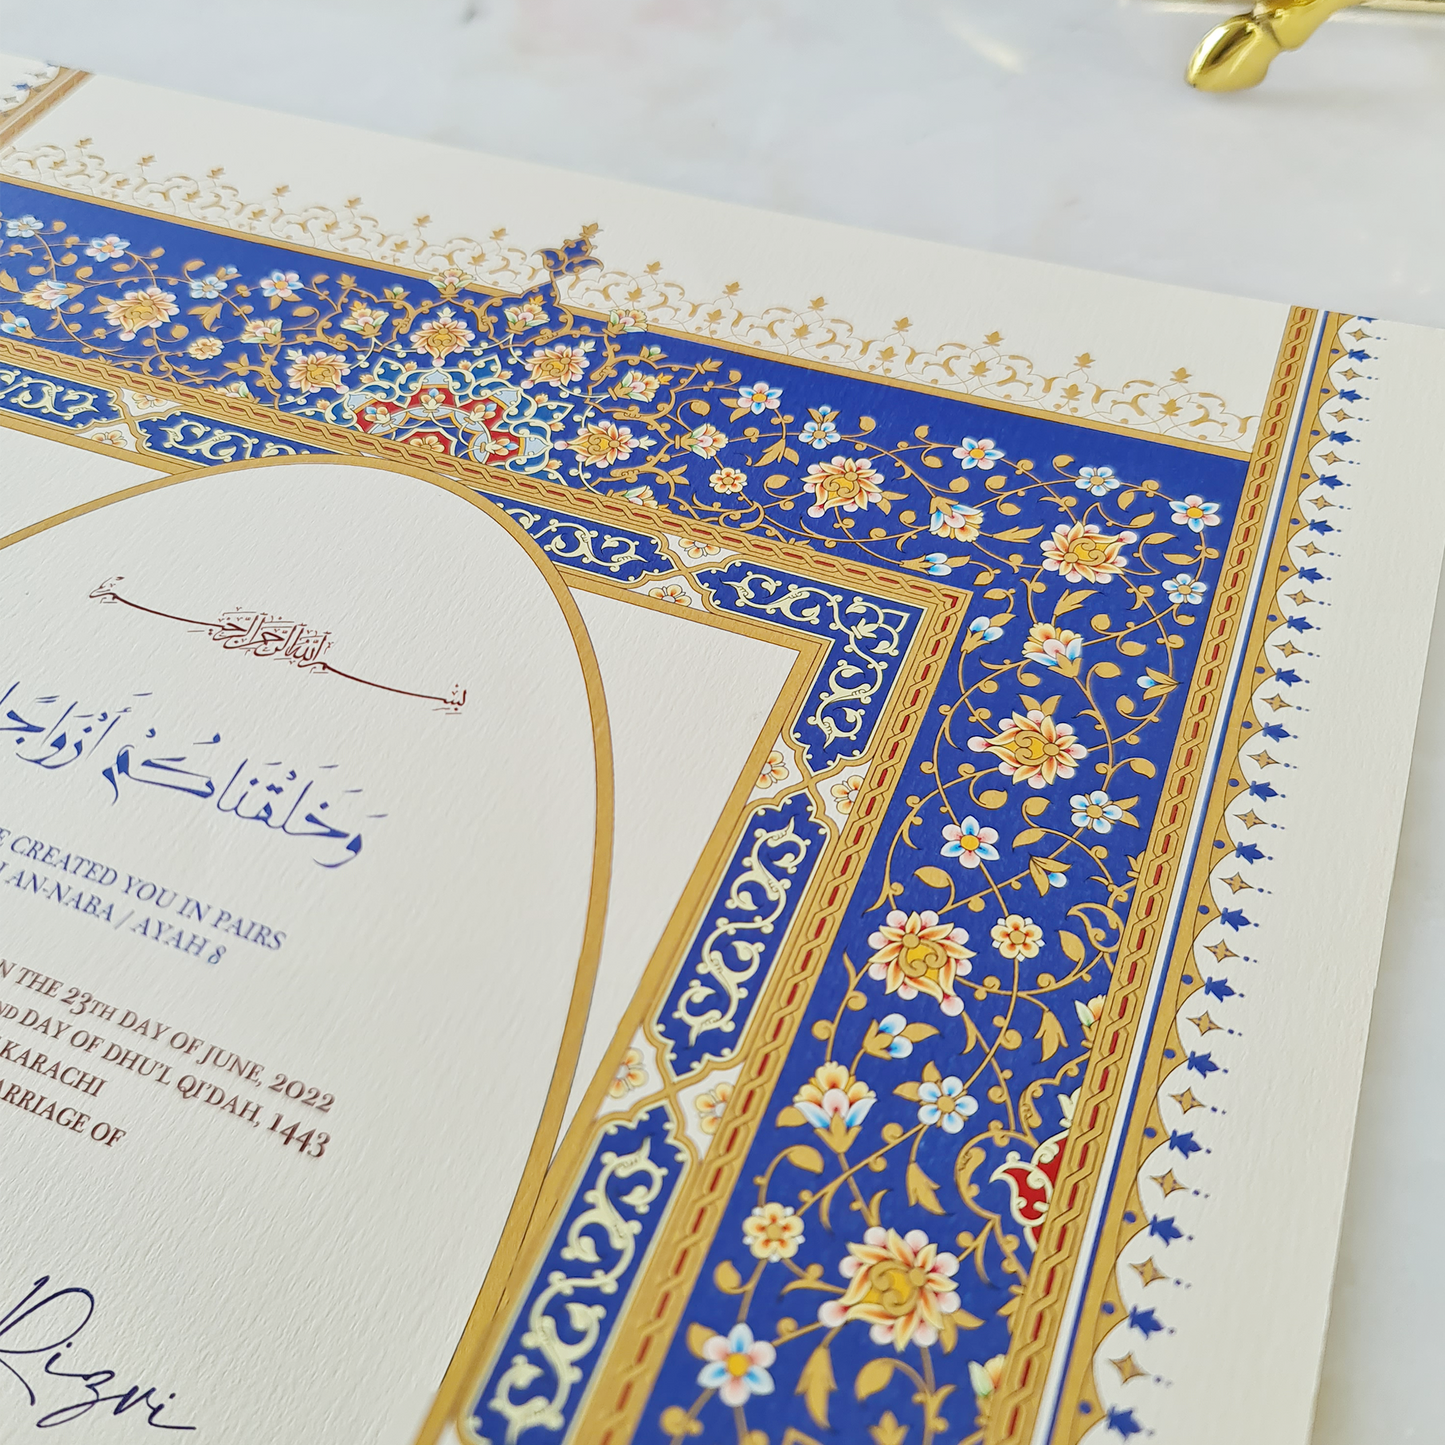 بسم الله الرحمن الرحيم
وَخَلَقْنَاكُمْ أَزْوَاجًا
CREATED YOU IN PAIRS
AN-NABA / AYAH 8
THE 23TH DAY OF JUNE, 2022
DAY OF DHU'L QI'DAH, 1443
KARACHI
OF
Rizvi